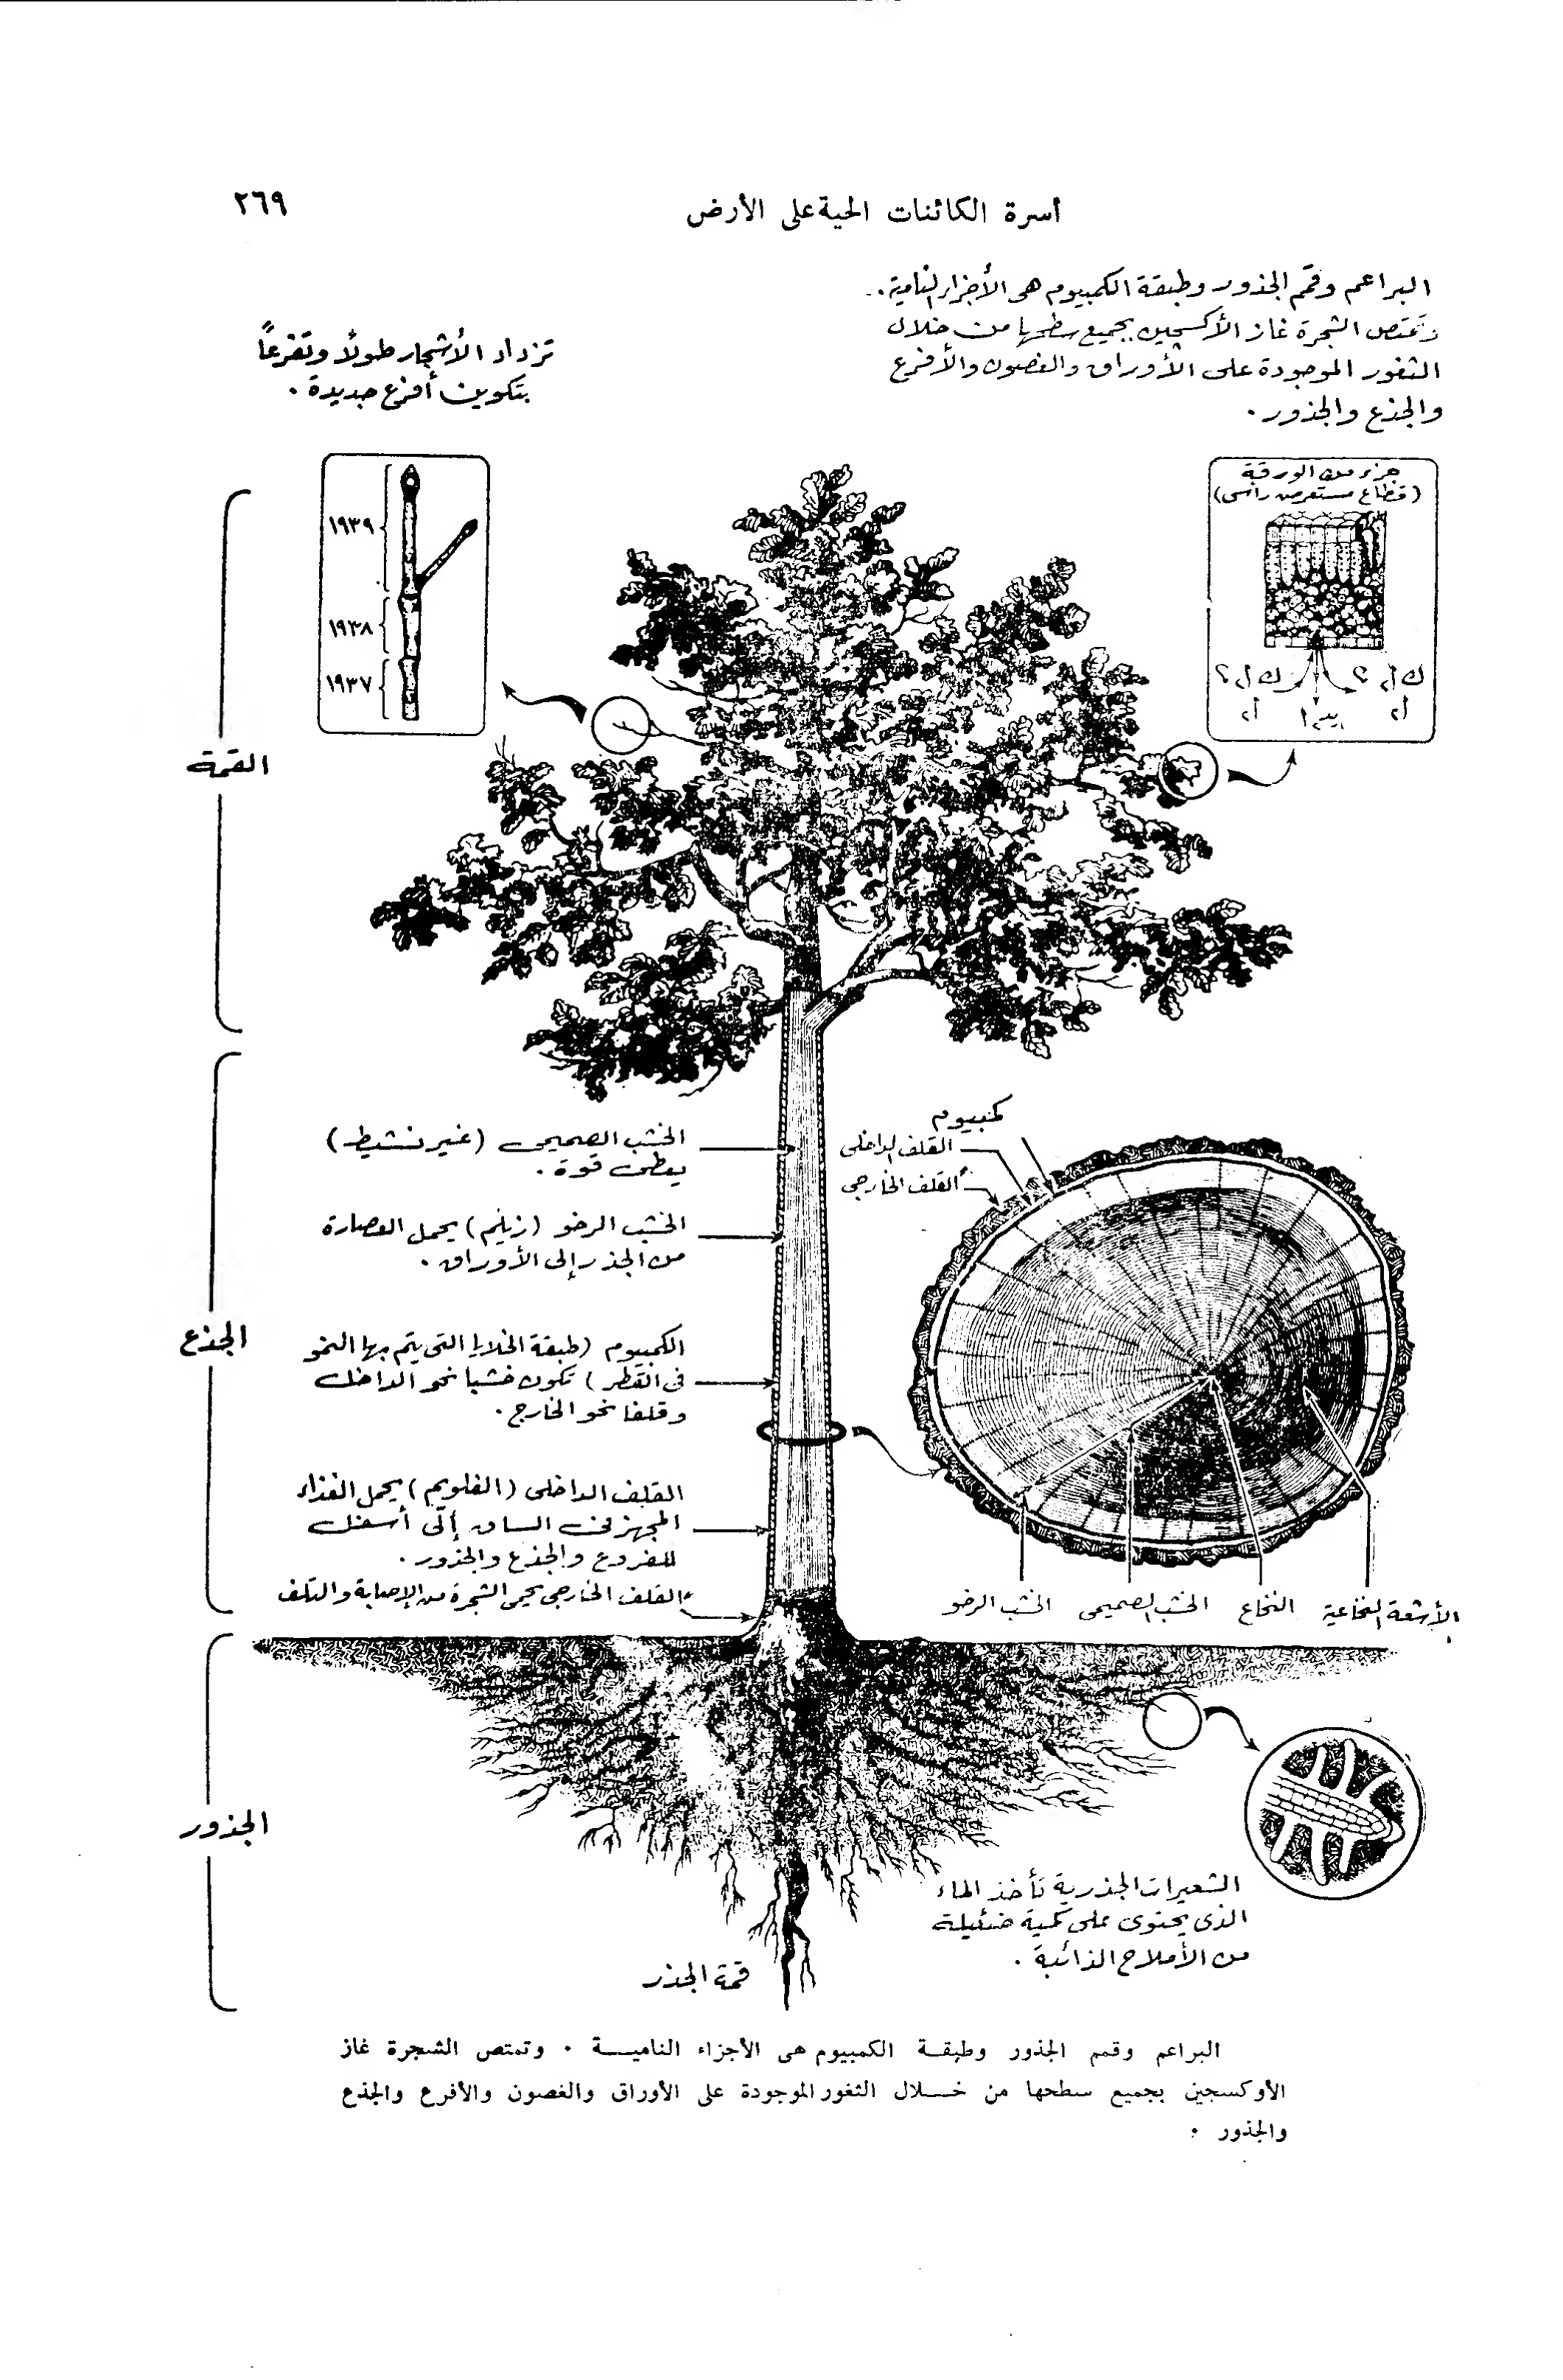 أسرة الكائنات الحية على الأرض
٢٦٩
البراعم وقمم الجذور وطبقة الكمبيوم هى الأجزاء النامية .
وتمتص الشجرة غاز الأكسجين بجميع سطحها من خلال
الثغور الموجودة على الأوراق والغصون والأفرع
والجذع والجذور .
تزداد الأشجار طولاً وتفرعاً
بتكوين أفرع جديدة .
جزء من الورقة
(قطاع مستعرض رأسى)
١٩٣٩
١٩٣٨
١٩٣٧
القمة
الخشب الصميمى (غير نشيط)
يعطى قوة .
الخشب الرخو (زيلم) يحمل العصارة
من الجذر إلى الأوراق .
الجذع
الكمبيوم (طبقة الخلايا التى يتم بها النمو
فى القطر) تكون خشبا نحو الداخل
وقلفا نحو الخارج .
القلف الداخلى (الفلويم) يحمل الغذاء
المجهز فى الساق إلى أسفل
للفروع والجذع والجذور .
القلف الخارجى يحمى الشجرة من الإصابة والتلف
كمبيوم
القلف الداخلى
القلف الخارجى
الأشعة النخاعية
النخاع
الخشب الصميمى
الخشب الرخو
الجذور
الشعيرات الجذرية تأخذ الماء
الذى يحتوى على كمية ضئيلة
من الأملاح الذائبة .
قمة الجذر
البراعم وقمم الجذور وطبقة الكمبيوم هى الأجزاء النامية . وتمتص الشجرة غاز
الأوكسجين بجميع سطحها من خلال الثغور الموجودة على الأوراق والغصون والأفرع والجذع
والجذور .